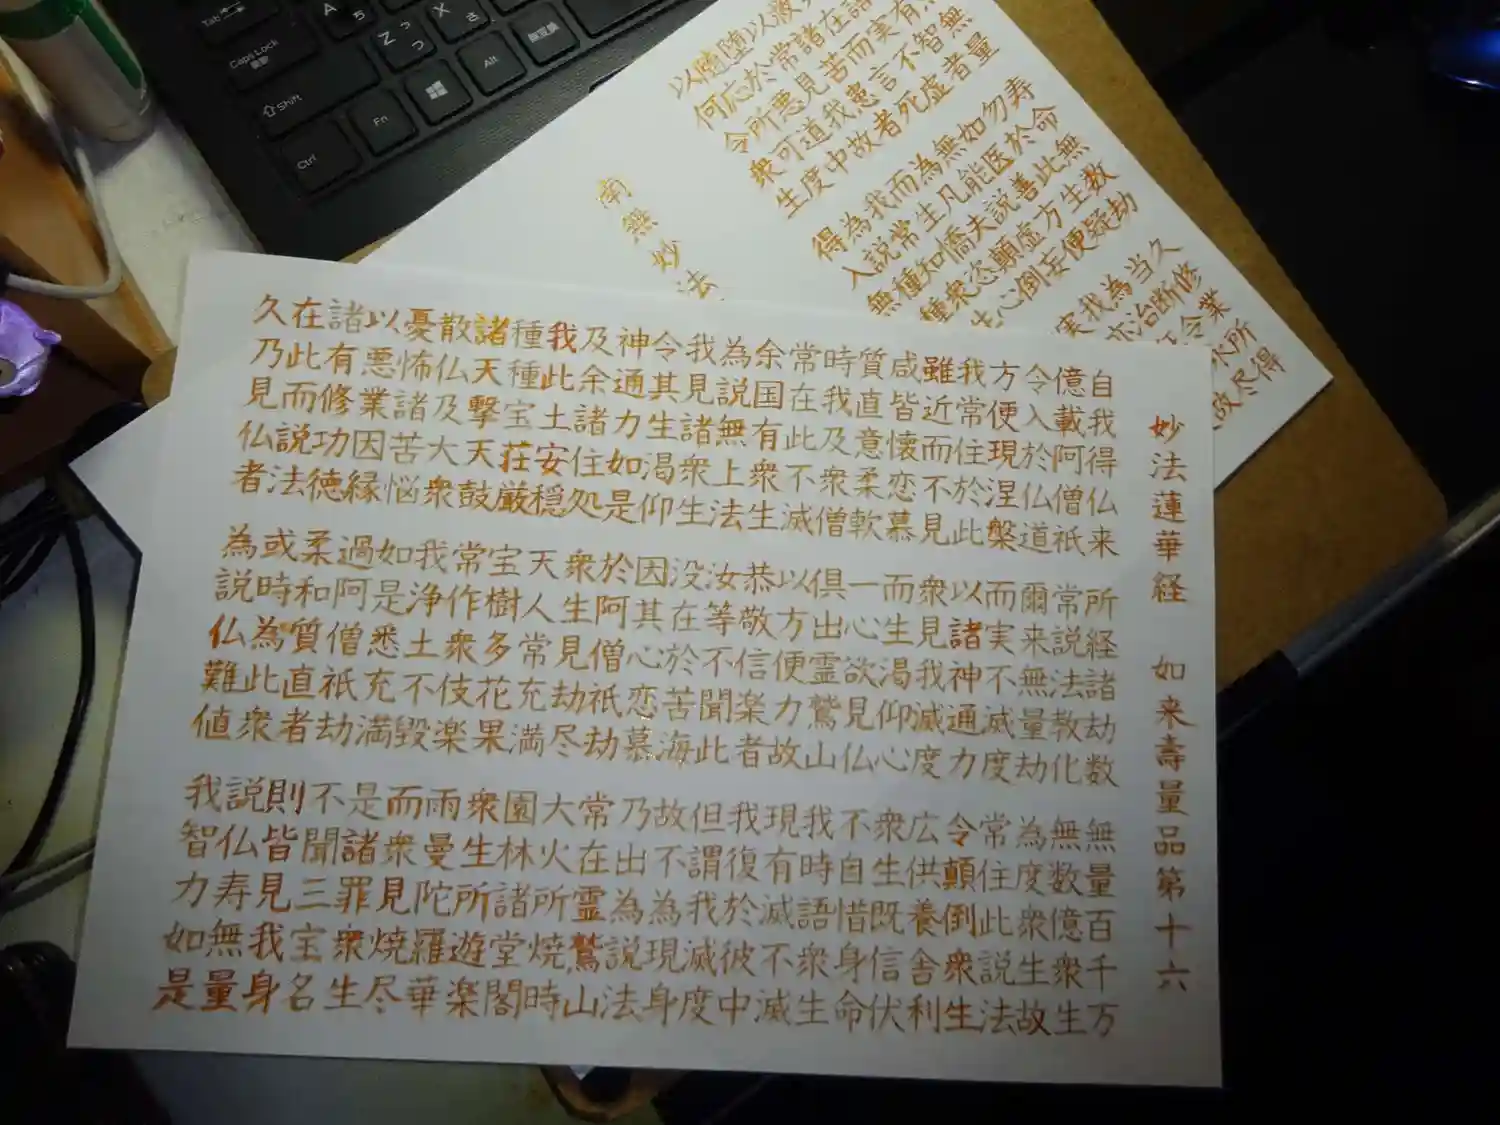 妙法蓮華経 如来壽量品第十六
自我得仏来 所経諸劫数 無量百千万
億載阿僧祇 常説法教化 無数億衆生
令入於仏道 爾来無量劫 為度衆生故
方便現涅槃 而実不滅度 常住此説法
我常住於此 以諸神通力 令顛倒衆生
雖近而不見 衆見我滅度 広供養舎利
咸皆懐恋慕 而生渇仰心 衆生既信伏
質直意柔軟 一心欲見仏 不自惜身命
時我及衆僧 倶出霊鷲山 我時語衆生
常在此不滅 以方便力故 現有滅不滅
余国有衆生 恭敬信楽者 我復於彼中
為説無上法 汝等不聞此 但謂我滅度
我見諸衆生 没在於苦海 故不為現身
令其生渇仰 因其心恋慕 乃出為説法
神通力如是 於阿僧祇劫 常在霊鷲山
及余諸住処 衆生見劫尽 大火所焼時
我此土安穏 天人常充満 園林諸堂閣
種種宝荘厳 宝樹多花果 衆生所遊楽
諸天撃天鼓 常作衆伎楽 雨曼陀羅華
散仏及大衆 我浄土不毀 而衆見焼尽
憂怖諸苦悩 如是悉充満 是諸罪衆生
以悪業因縁 過阿僧祇劫 不聞三宝名
諸有修功徳 柔和質直者 則皆見我身
在此而説法 或時為此衆 説仏寿無量
久乃見仏者 為説仏難値 我智力如是
無量 寿命無数劫 久修業所得
智者 勿於此生疑 当断令
有不虚 如医善方便 為治
諸実言死 無能説虚妄 我亦
在而 為凡夫顛倒 実
常見我故 而生憍恣心
随於悪道中 我常知衆生
随応所可度 為説種種
以何令衆生 得入無
南無妙法
Tab
A ち
Caps Lock
英数
Z つ
X さ
Shift
Alt
無変換
Fn
Ctrl